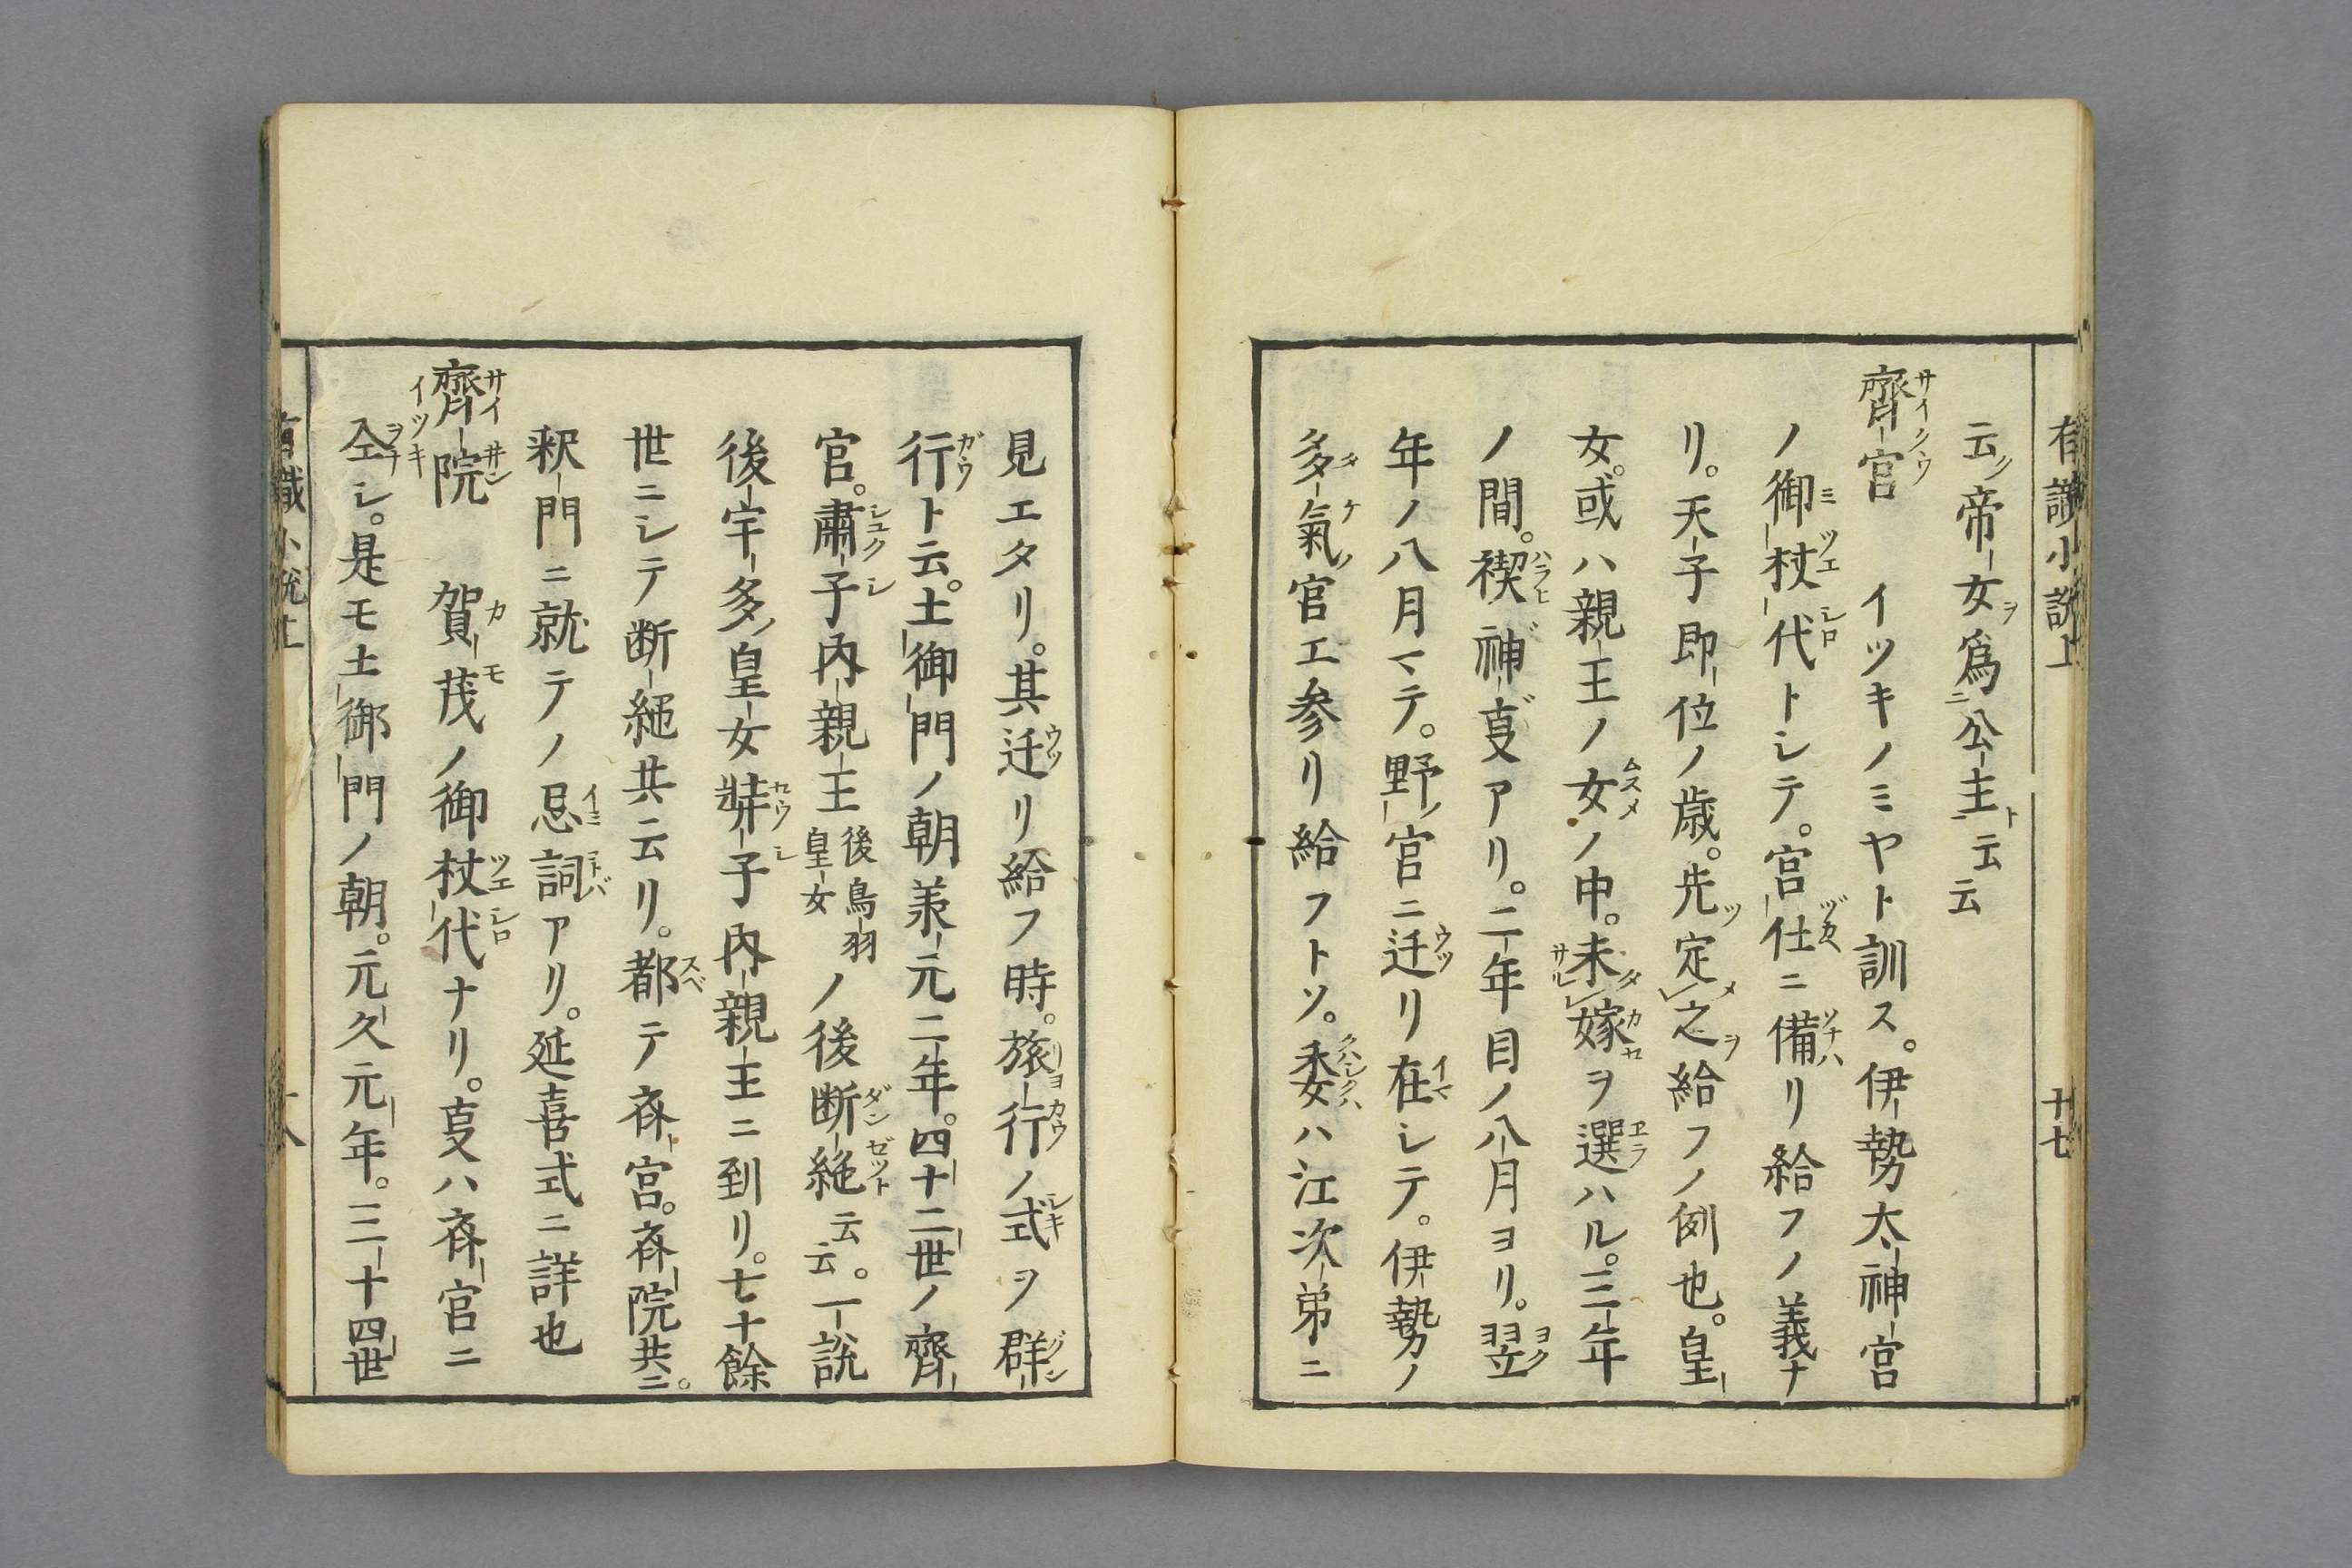 有識小説上
十七
云帝女爲公主云云
齊宮　イツキノミヤト訓ス。伊勢太神宮
ノ御杖代トシテ。宮仕ニ備リ給フノ義ナ
リ。天子即位ノ歳。先定之給フノ例也。皇
女。或ハ親王ノ女ノ中。未嫁ヲ選ハル。三年
ノ間。禊神叓アリ。二年目ノ八月ヨリ。翌
年ノ八月マテ。野宮ニ迁リ在シテ。伊勢ノ
多氣宮エ参リ給フトソ。委ハ江次弟ニ
見エタリ。其迁リ給フ時。旅行ノ式ヲ群
行ト云。土御門ノ朝兼元二年。四十二世ノ齊
宮。肅子内親王後鳥羽皇女ノ後断絶云云。一説
後宇多皇女弉子内親王ニ到リ。七十餘
世ニシテ断絶共云リ。都テ斎宮。斎院共ニ。
釈門ニ就テノ忌詞アリ。延喜式ニ詳也
齊院　賀茂ノ御杖代ナリ。叓ハ斎宮ニ
仝シ。是モ土御門ノ朝。元久元年。三十四世
有職小説上
十八